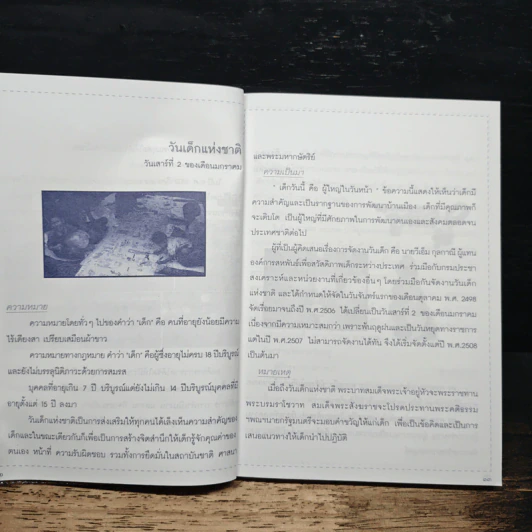 วันเด็กแห่งชาติ
วันเสาร์ที่ 2 ของเดือนมกราคม
ความหมาย
ความหมายโดยทั่วๆ ไปของคำว่า "เด็ก" คือ คนที่อายุยังน้อยมีความ
ไร้เดียงสา เปรียบเสมือนผ้าขาว
ความหมายทางกฎหมาย คำว่า "เด็ก" คือผู้ซึ่งอายุไม่ครบ 18 ปีบริบูรณ์
และยังไม่บรรลุนิติภาวะด้วยการสมรส
บุคคลที่อายุเกิน 7 ปี บริบูรณ์แต่ยังไม่เกิน 14 ปีบริบูรณ์บุคคลที่มี
อายุตั้งแต่ 15 ปี ลงมา
วันเด็กแห่งชาติเป็นการส่งเสริมให้ทุกคนได้เล็งเห็นความสำคัญของ
เด็กและในขณะเดียวกันก็เพื่อเป็นการสร้างจิตสำนึกให้เด็กรู้จักคุณค่าของ
ตนเอง หน้าที่ ความรับผิดชอบ รวมทั้งการยึดมั่นในสถาบันชาติ ศาสนา
และพระมหากษัตริย์
ความเป็นมา
" เด็กวันนี้ คือ ผู้ใหญ่ในวันหน้า " ข้อความนี้แสดงให้เห็นว่าเด็กมี
ความสำคัญและเป็นรากฐานของการพัฒนาบ้านเมือง เด็กที่มีคุณภาพก็
จะเติบโต เป็นผู้ใหญ่ที่มีศักยภาพในการพัฒนาตนเองและสังคมตลอดจน
ประเทศชาติต่อไป
ผู้ที่เป็นผู้คิดเสนอเรื่องการจัดงานวันเด็ก คือ นายวีเอ็ม กุลกานี ผู้แทน
องค์การสหพันธ์เพื่อสวัสดิภาพเด็กระหว่างประเทศ ร่วมมือกับกรมประชา
สงเคราะห์และหน่วยงานที่เกี่ยวข้องอื่นๆ โดยร่วมมือกันจัดงานวันเด็ก
แห่งชาติ และได้กำหนดให้จัดในวันจันทร์แรกของเดือนตุลาคม พ.ศ. 2498
จัดเรื่อยมาจนถึงปี พ.ศ.2506 ได้เปลี่ยนเป็นวันเสาร์ที่ 2 ของเดือนมกราคม
เนื่องจากมีความเหมาะสมกว่า เพราะพ้นฤดูฝนและเป็นวันหยุดทางราชการ
แต่ในปี พ.ศ.2507 ไม่สามารถจัดงานได้ทัน จึงได้เริ่มจัดตั้งแต่ปี พ.ศ.2508
เป็นต้นมา
หมายเหตุ
เมื่อถึงวันเด็กแห่งชาติ พระบาทสมเด็จพระเจ้าอยู่หัวจะพระราชทาน
พระบรมราโชวาท สมเด็จพระสังฆราชจะโปรดประทานพระคติธรรม
ฯพณฯนายกรัฐมนตรีจะมอบคำขวัญให้แก่เด็ก เพื่อเป็นข้อคิดและเป็นการ
เสนอแนวทางให้เด็กนำไปปฏิบัติ